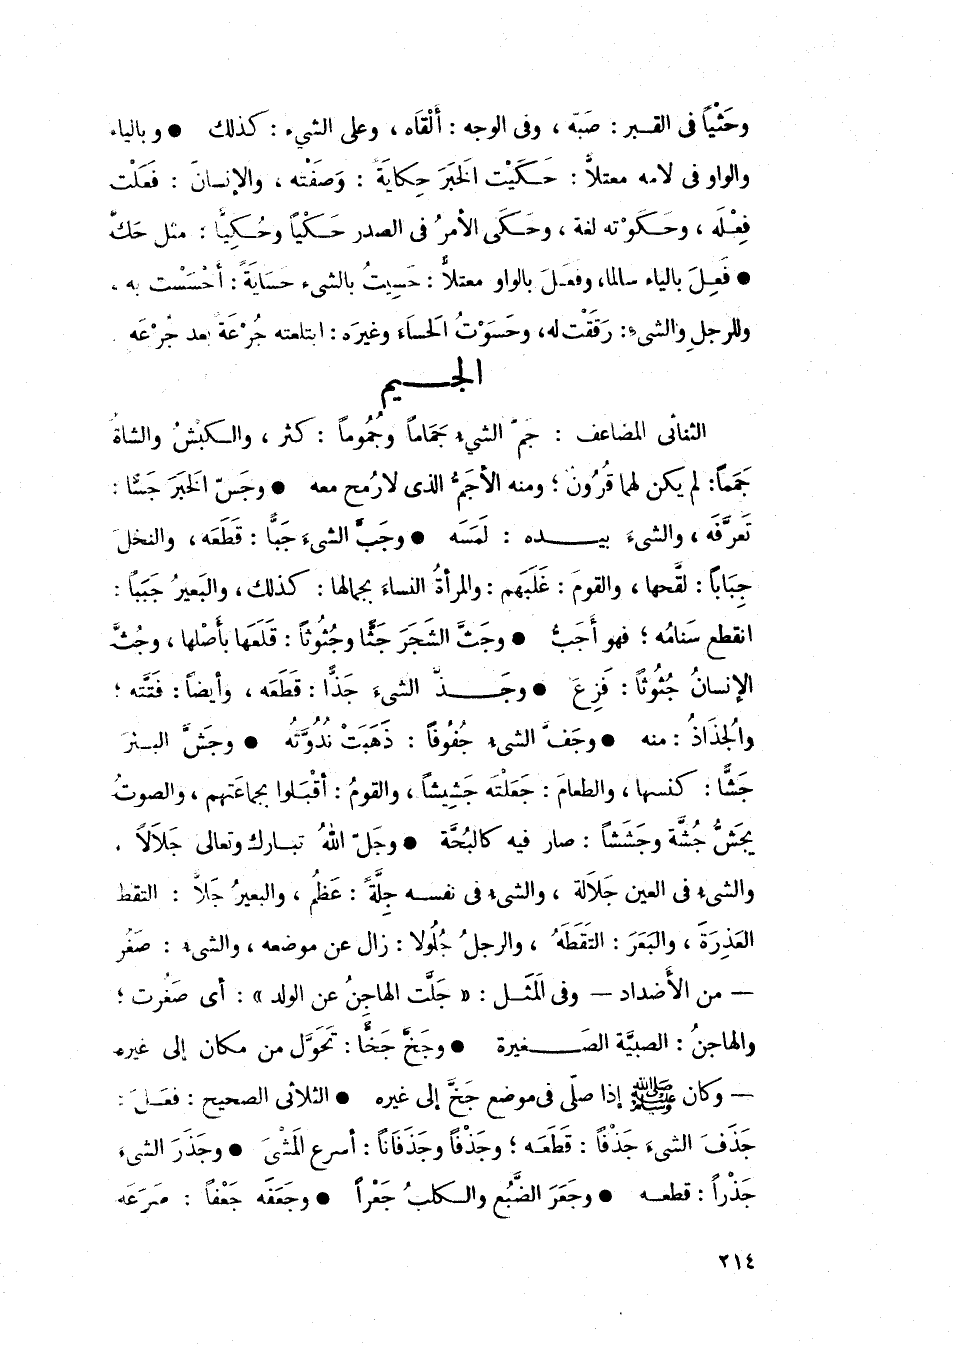 وحَثْياً فى القبر : صَبَّه ، وفى الوجه : أَلْقَاه ، وعلى الشيء : كذلك ● وبالياء
والواو فى لامه معتلاًّ : حَكَيْت الخَبَرَ حِكايَةً : وَصَفْته ، والإنسانَ : فَعَلْت
فِعْلَه ، وحَكَوْته لغة ، وحَكَى الأمرُ فى الصدر حَكْياً وحُكِيًّا : مثل حَكَّ
● فَعِلَ بالياء سالما، وفعَلَ بالواو معتلاًّ : حَسِيتُ بالشىء حَسَايَةً : أحْسَسْت به ،
وللرجلِ والشىءِ : رَقَقْت له، وحَسَوْتُ الحسَاءَ وغيرَه : ابتلعته جُرْعَةً بعد جُرْعَه .
الجـيم
الثنائى المضاعف : جَمّ الشيء جَمَاماً وجُمُوماً : كثر ، والكبْشُ والشاةُ
جَمَماً: لم يكن لهما قُرُون ؛ ومنه الأجَمُّ الذى لا رُمح معه ● وجَسّ الخَبَرَ جَسًّا :
تَعرَّفَه ، والشىءَ بيده : لَمَسَه ● وجَبَّ الشىءَ جَبًّا : قَطَعَه ، والنخلَ
جِبَاباً : لقَّحها ، والقومَ : غَلَبَهم : والمرأةُ النساءَ بجمالها : كذلك ، والبَعيرُ جَبَباً :
انقطع سَنامُه ؛ فهو أَجَبُّ ● وجَثَّ الشَجَرَ جَثًّا وجُثُوثاً : قَلَعَها بأَصْلها ، وجُثَّ
الإنسانُ جُثُوثاً : فَزِعَ ● وجَذّ الشىءَ جَذًّا : قَطَعَه ، وأيضاً : فَتَّته ؛
والجُذَاذُ : منه ● وجَفَّ الشىء جُفُوفاً : ذَهَبَتْ نُدُوَّتُه ● وجَشَّ البئرَ
جَشًّا : كنسها ، والطعامَ : جَعَلْتَه جَشِيشاً ، والقومُ : أقْبَلوا بجماعَتهم ، والصوتُ
يجَشُّ جُشَّة وجَشَشاً : صار فيه كالبُحَّة ● وجَلّ اللهُ تبارك وتعالى جَلاَلاً .
والشىء فى العين جَلاَلة ، والشىء فى نفسه جِلَّةً : عَظُم ، والبعيرُ جَلاًّ : التقط
العَذِرَةَ ، والبَعَرَ : التَقَطَهُ ، والرجلُ جُلُولا : زال عن موضعه ، والشىء : صَغُر
— من الأَضداد — وفى المَثَل : « جَلَّت الهاجِنُ عن الولد » : أى صَغُرت ؛
والهاجنُ : الصبيَّة الصَغيرة ● وجَخَّ جَخًّا : تَحَوَّل من مكان إلى غيره
— وكان ﷺ إذا صلّى فى موضع جَخَّ إلى غيره ● الثلاثى الصحيح : فعَلَ :
جَذَفَ الشىءَ جَذْفاً : قَطَعَه ؛ وجَذْفاً وجَذَفَاناً : أسرع المَشْىَ ● وجَذَرَ الشىءَ
جَذْراً : قطعه ● وجَعَرَ الضَّبُع والكلبُ جَعْراً ● وجَعَفَه جَعْفاً : صَرَعَه
٢١٤